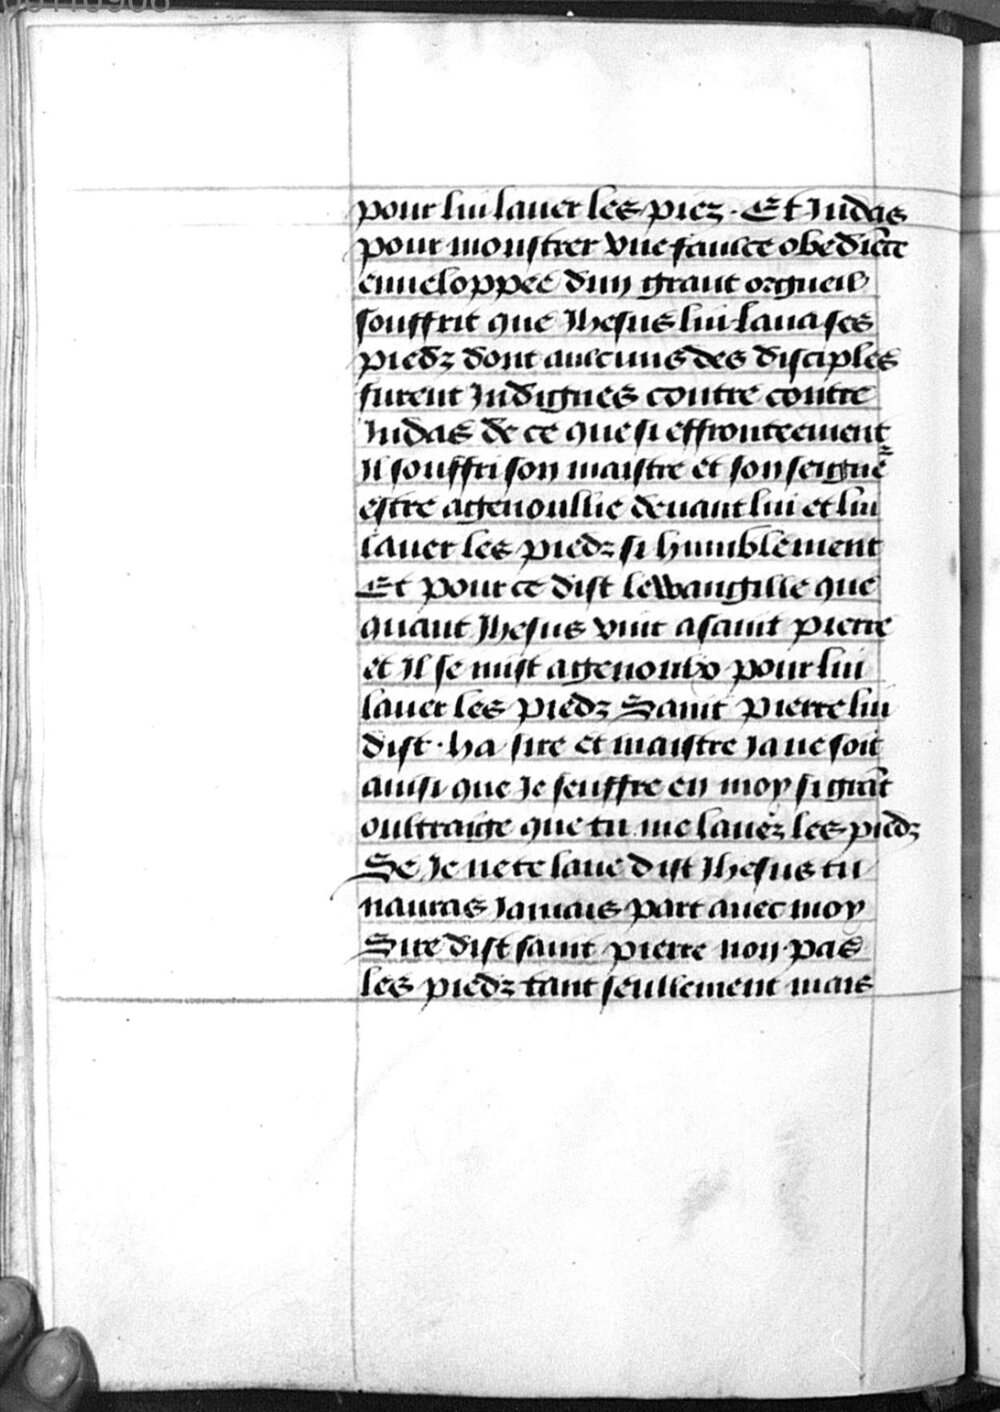 pour lui lauer les piez · Et Judas
pour monstrer vne faulce obediẽce
enueloppee dun grant orgueil
souffrit que Jhesus lui laua ses
piedz dont aulcuns des disciples
furent Indignes contre contre
Judas de ce que si effronteement
Il souffri son maistre et son seigne᷑
estre agenoullie deuant lui et lui
lauer les piedz si humblement
Et pour ce dist lewangille que
quant Jhesus vint a saint pierre
et Il se mist a genoulx pour lui
lauer les piedz Saint pierre lui
dist · ha sire et maistre Ja ne soit
ainsi que Je seuffre en moy si grãt
oultraige que tu me lauez les piedz
Se Je ne te laue dist Jhesus tu
nauras Jamais part auec moy
Sire dist saint pierre non pas
les piedz tant seullement mais